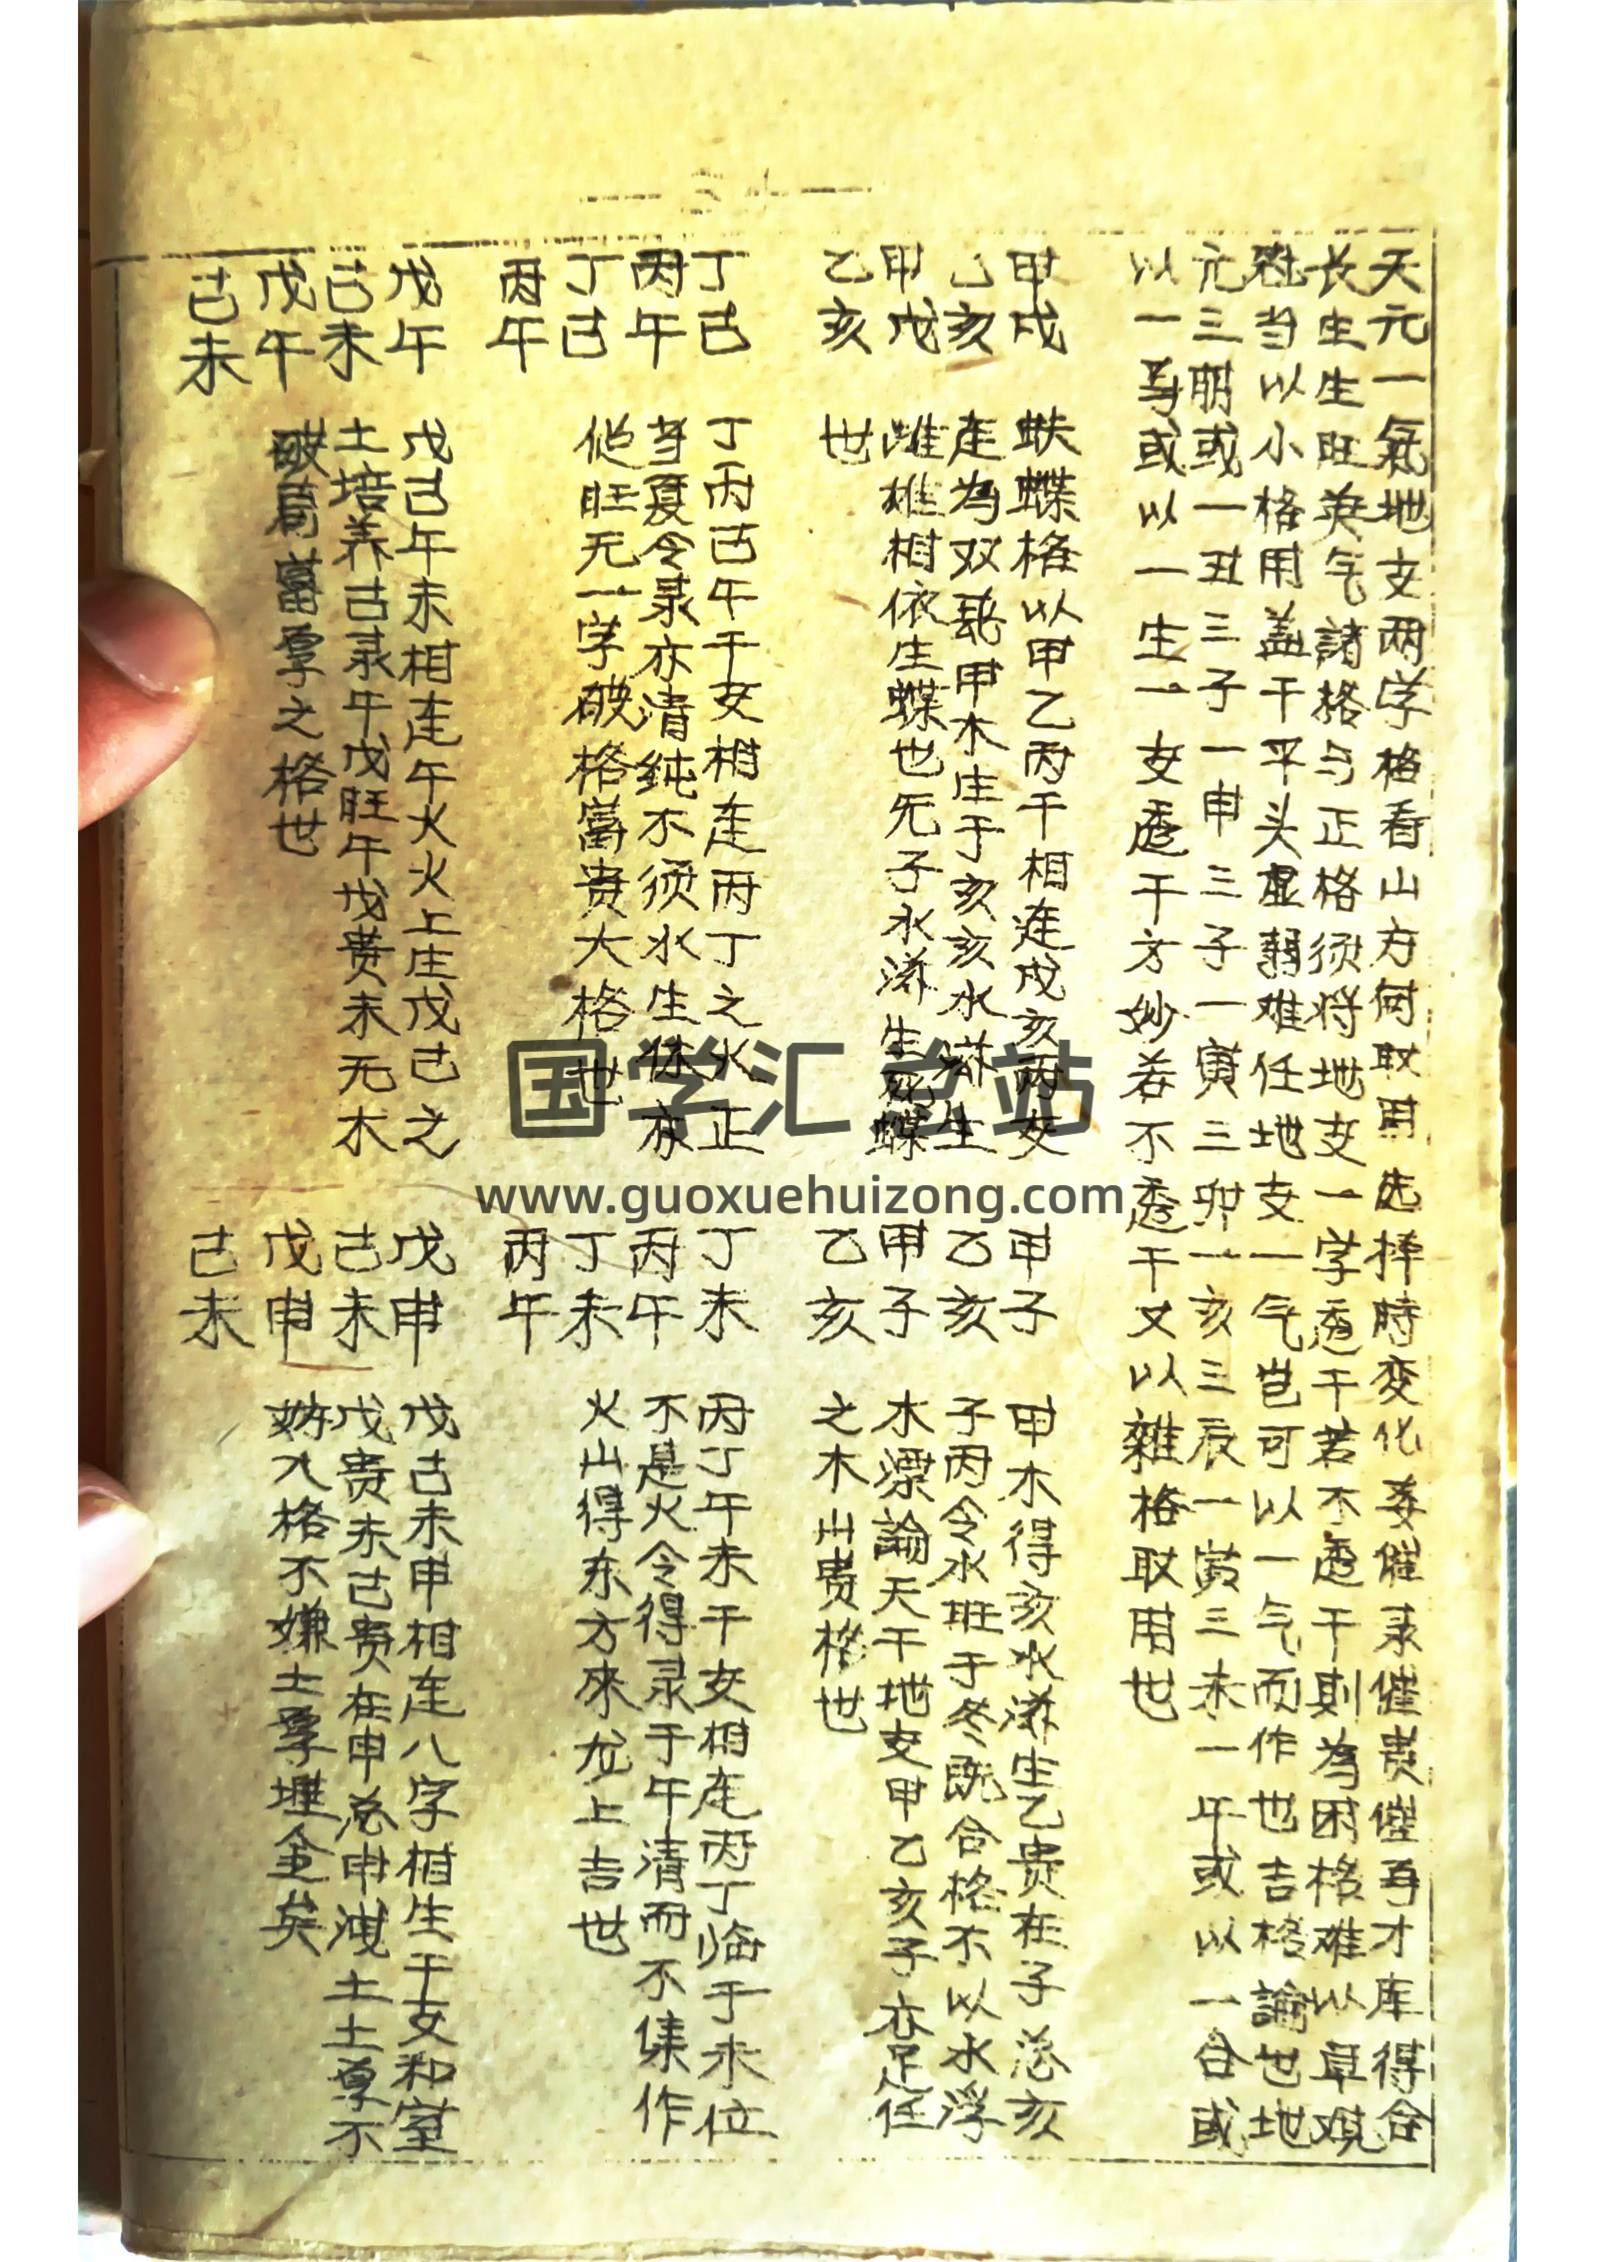 天元一氣地支两字格看山方何取用选择時变化妻催录催贵催再才库得合
长生生旺英气諸格与正格须将地支一字透干若不透干則為困格难以卓观
当以小格用盖干平头虚弱难任地支一气岂可以一气而作也吉格論也地
元三朋或一丑三子一申三子一寅三卯一亥三辰一寅三未一午或以一合或
以一马或以一生一支透干方妙若不透干又以雜格取用也
甲戌
乙亥
甲戌
乙亥
蚨蝶格以甲乙两干相连戌亥两支
连為双甲木生于亥亥水滋生
雌雄相依生蝶也旡子水滋生死蝶
世
甲子
乙亥
甲子
乙亥
甲木得亥水滋生乙贵在子总亥
子两令水旺于冬既合格不以水浮
木漂論天干地支甲乙亥子亦足任
之木山贵格世
丁巳
丙午
丁巳
丙午
丁丙巳午干支相连丙丁之火正
当夏令录亦清鈍不须水生休亥
他旺无一字破格富贵大格世
丁未
丙午
丁未
丙午
丙丁午未干支相连丙丁临于未位
不是火令得录于午清而不傑作
火山得东方來龙上吉世
戊午
己未
戊午
己未
戊己午未相连午火火上庄戊己之
土培养己录午戊旺午戊贵未无木
破局富厚之格世
戊申
己未
戊申
己未
戊己未申相连八字相生干支和室
戊贵未己贵在申总申洩土土厚不
妨入格不嫌土厚埋金矣
国学汇总站
www.guoxuehuizong.com